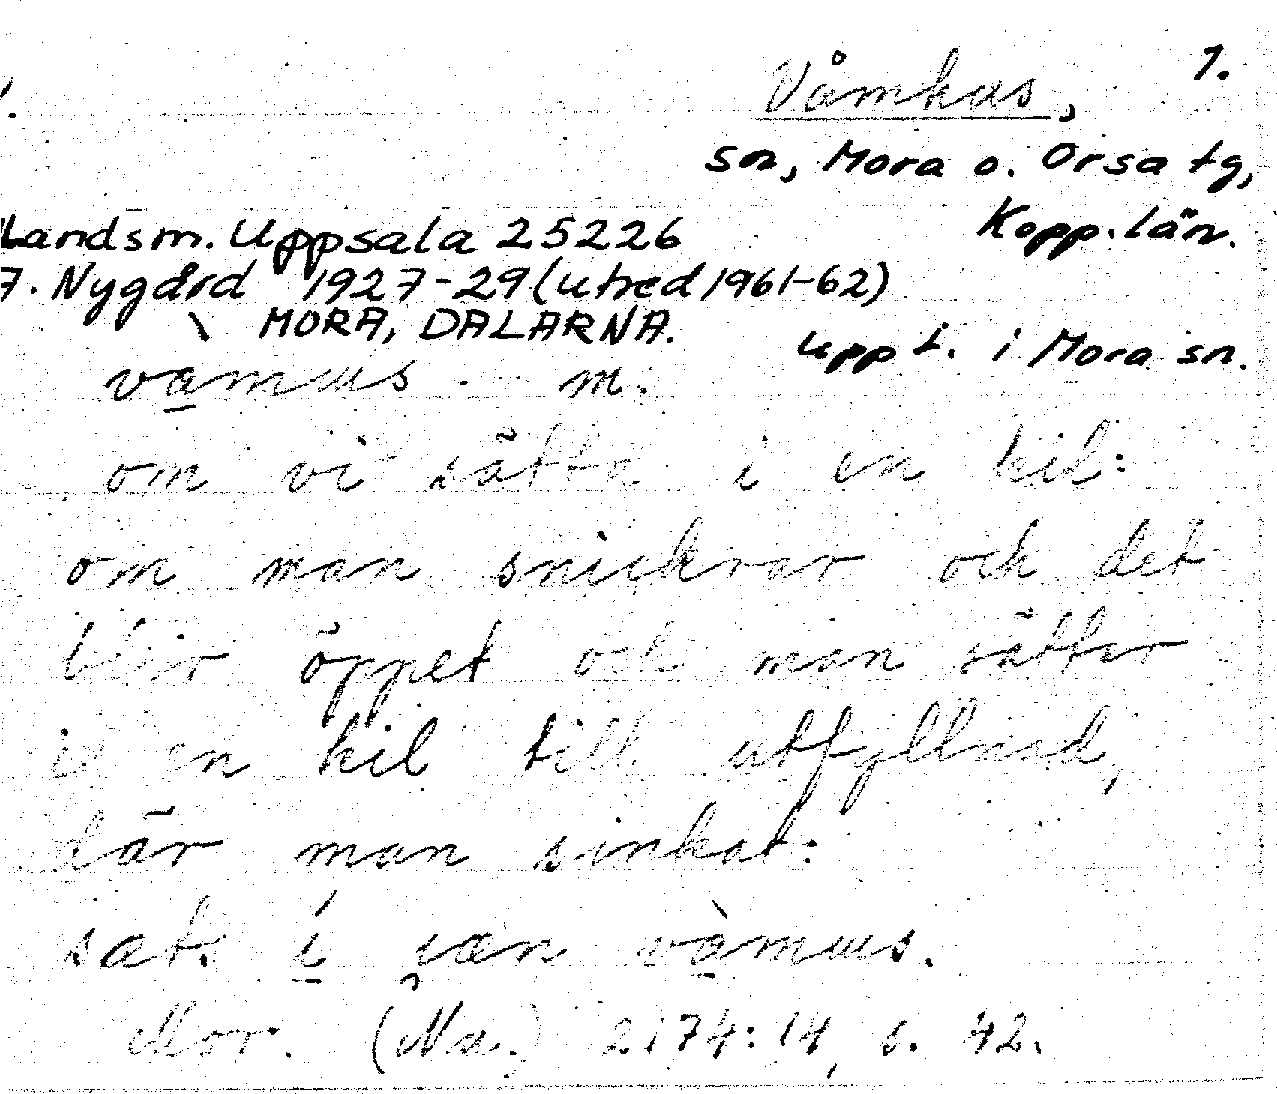 Våmhus, 1.
sn, Mora o. Orsa tg,
Kopp. län.
Landsm. Uppsala 25226
7. Nygård 1927-29 (utred 1961-62)
MORA, DALARNA.
uppt. i Mora sn.
và̱mɯs m.
om vi sätta i en kil:
om man snickrar och det
blir öppet och man sätter
i en kil till utfyllnad,
där man sinkat:
sæt í̱ i̯æn và̱mɯs.
Mor. (Næ.) 2174:14, s. 42.